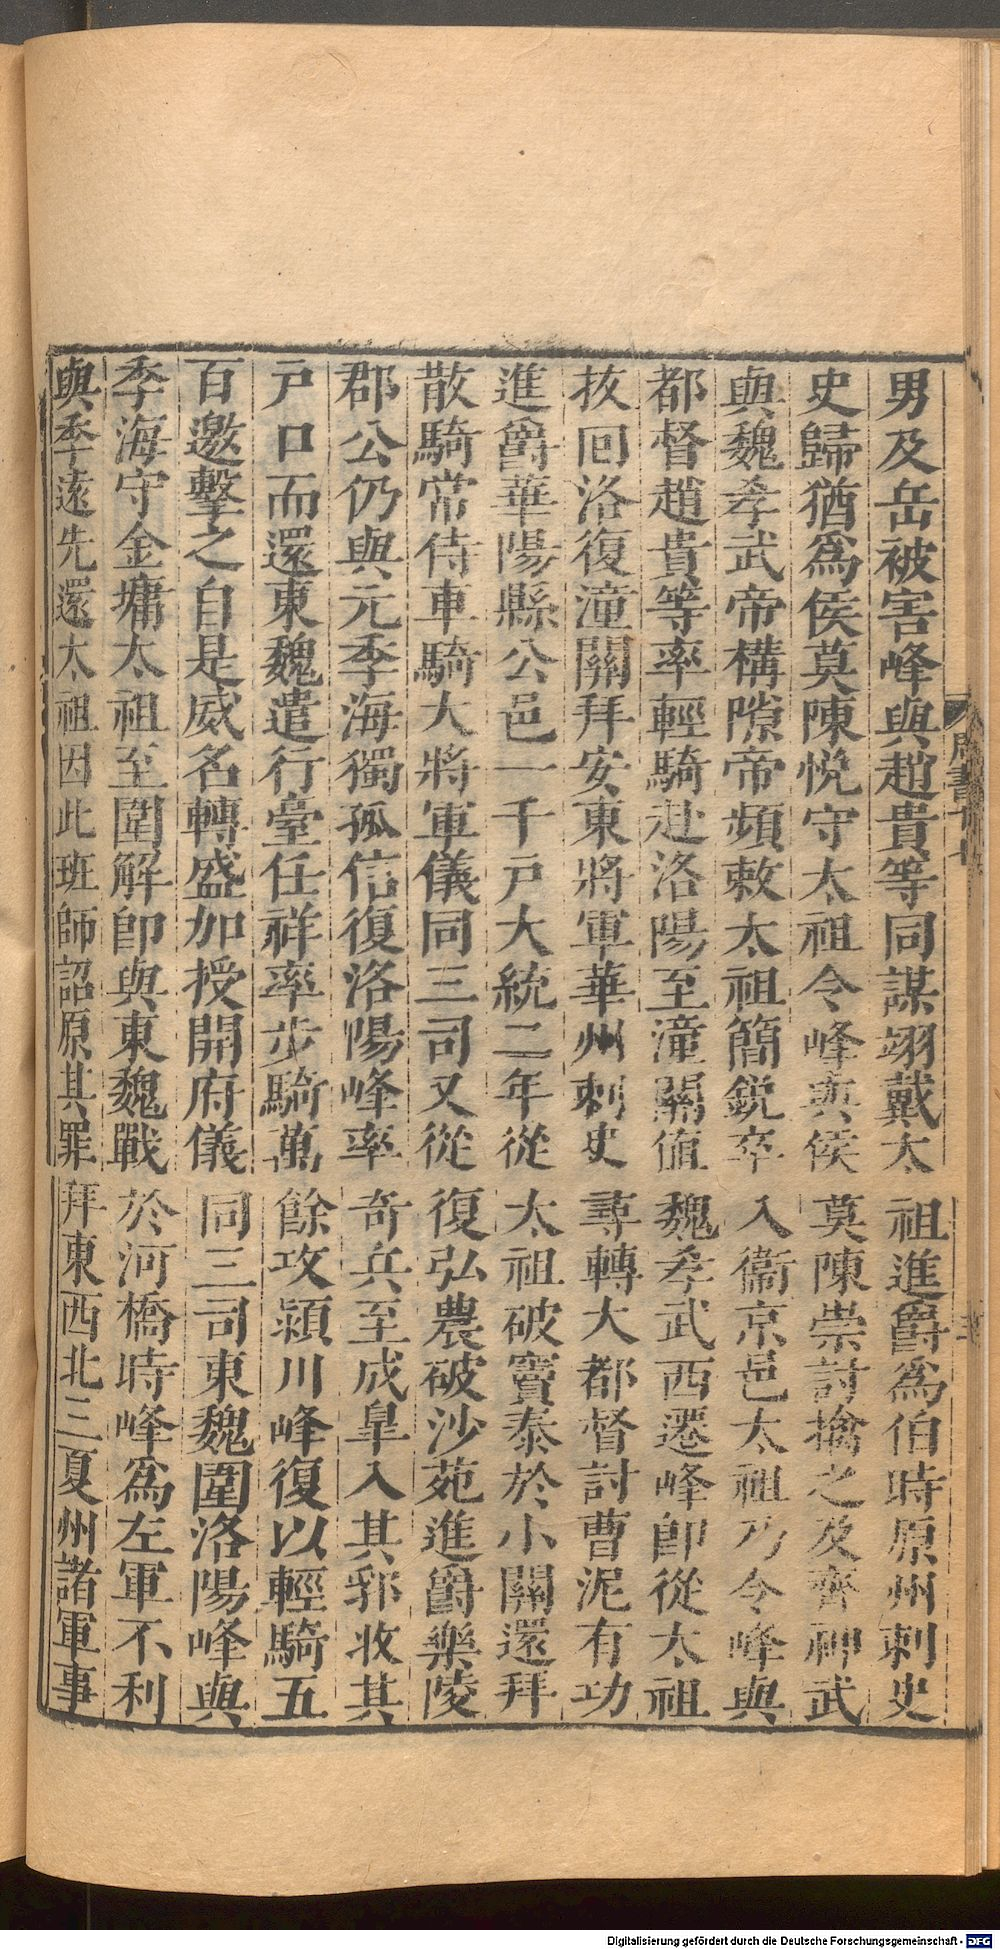 男及岳被害峰與趙貴等同謀翊戴太祖進爵爲伯時原州刺史
史歸猶爲侯莫陳悅守太祖令峰與侯莫陳崇討擒之及齊神武
與魏孝武帝構隙帝頻敕太祖簡銳卒入衞京邑太祖乃令峰與
都督趙貴等率輕騎赴洛陽至潼關值魏孝武西遷峰卽從太祖
拔回洛復潼關拜安東將軍華州刺史尋轉大都督討曹泥有功
進爵華陽縣公邑一千戸大統二年從太祖破竇泰於小關還拜
散騎常侍車騎大將軍儀同三司又從復弘農破沙苑進爵樂陵
郡公仍與元季海獨孤信復洛陽峰率奇兵至成皐入其郛收其
戸口而還東魏遣行臺任祥率步騎萬餘攻潁川峰復以輕騎五
百邀擊之自是威名轉盛加授開府儀同三司東魏圍洛陽峰與
季海守金墉太祖至圍解卽與東魏戰於河橋時峰爲左軍不利
與季遠先還太祖因此班師詔原其罪拜東西北三夏州諸軍事
周書
Digitalisierung gefördert durch die Deutsche Forschungsgemeinschaft - DFG